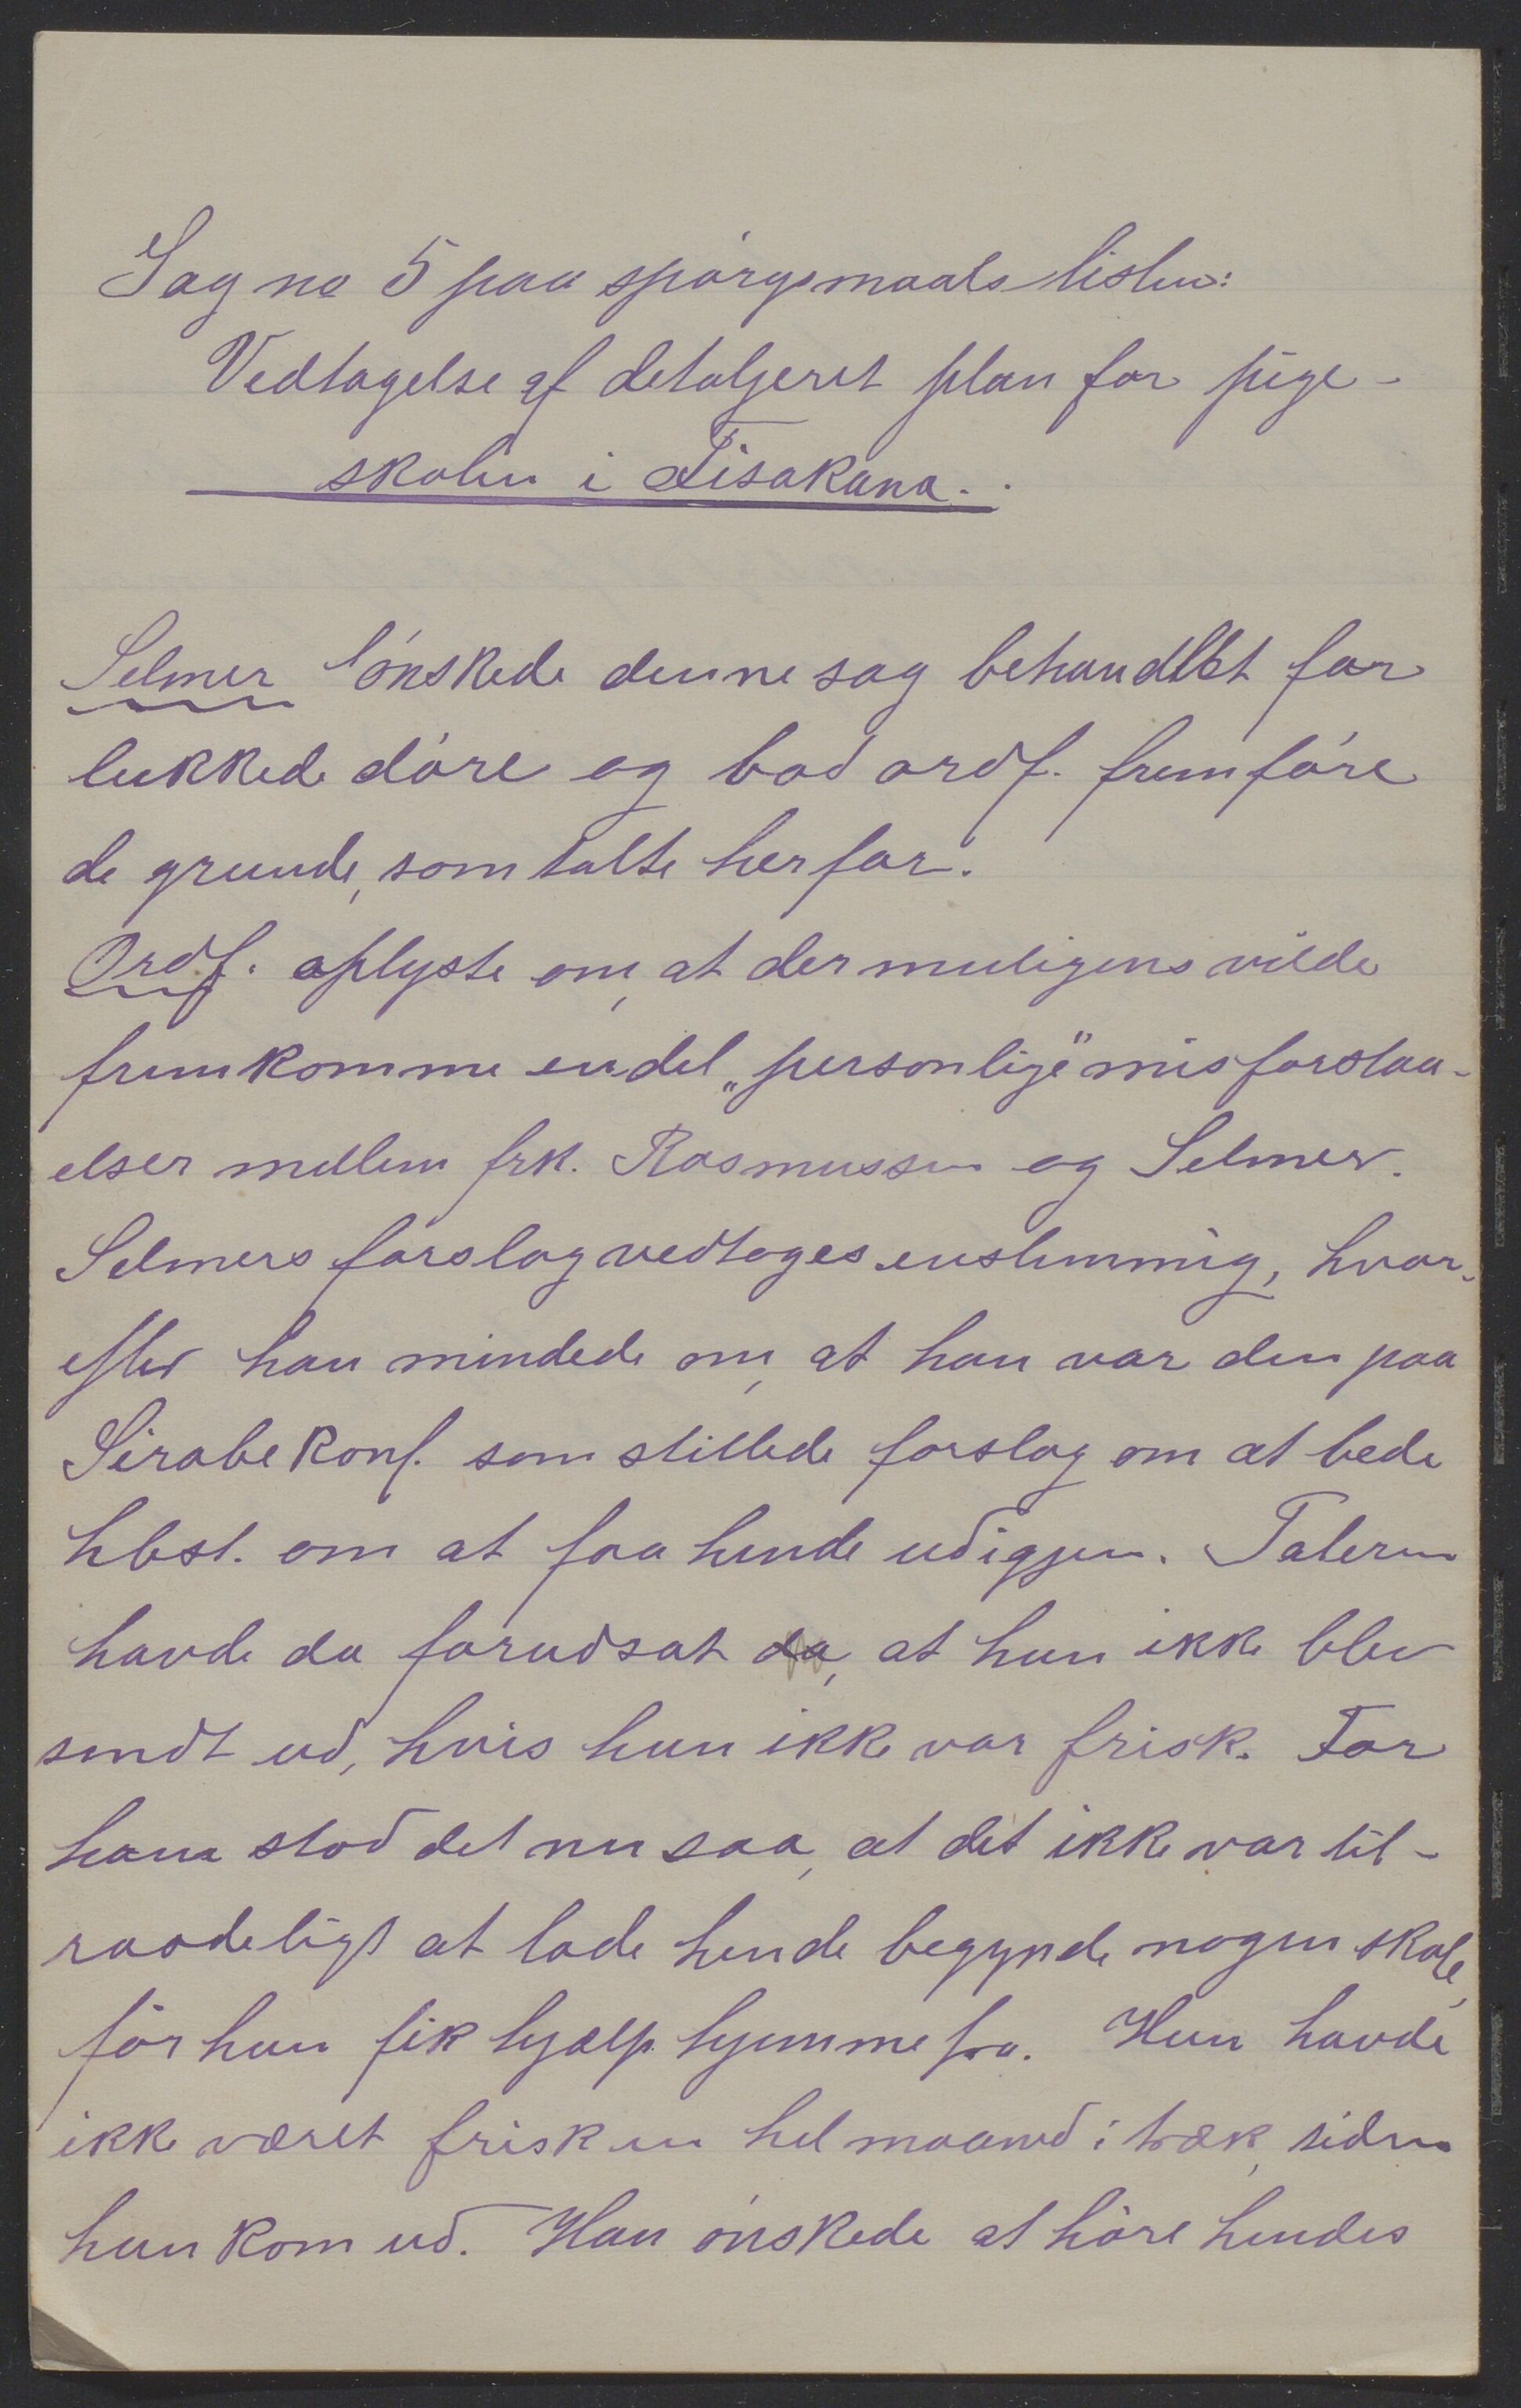 Sag no 5 paa spörgsmaals listen:
Vedtagelse af detaljeret plan for pige-
skolen i Fisakana.
Selmer önskede denne sag behandlet for
lukkede döre og bad ordf. fremföre
de grunde, som talte herfor.
Ordf. oplyste om, at der muligens vilde
fremkomme endel „personlige" misforstaa-
elser mellem frk. Rasmussen og Selmer.
Selmers forslag vedtoges enstemmig, hvor-
efter han mindede om, at han var den paa
Sirabe konf. som stillede forslag om at bede
hbst. om at faa hende ud igjen. Taleren
havde da forudsat da, at hun ikke blev
sendt ud, hvis hun ikke var frisk. For
ham stod det nu saa, at det ikke var til-
raadeligt at lade hende begynde nogen skole,
för hun fik hjælp hjemmefra. Hun havde
ikke været frisk en hel maaned i træk, siden
hun kom ud. Han önskede at höre hendes